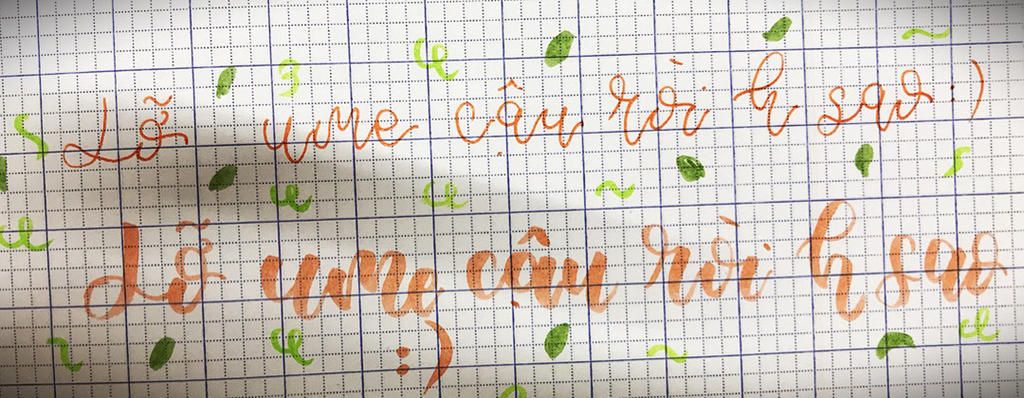 Lỡ ume cậu rồi h sao :)
Lỡ ume cậu rồi h sao
:)